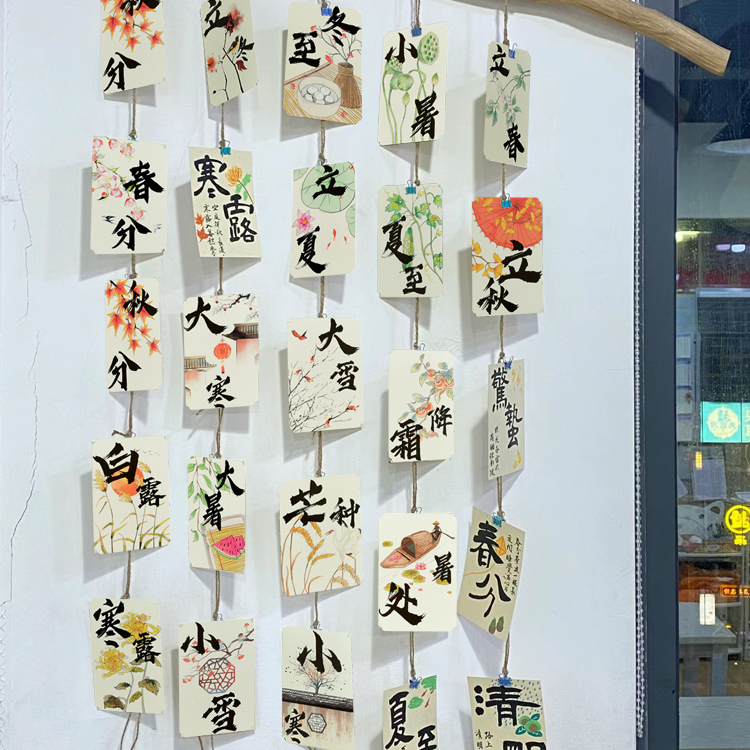 秋分
春分
秋分
白露
寒露
立冬
寒露
大寒
大暑
小雪
冬至
立夏
大雪
芒种
小寒
小暑
夏至
霜降
处暑
夏至
立春
立秋
驚蟄
春分
清明